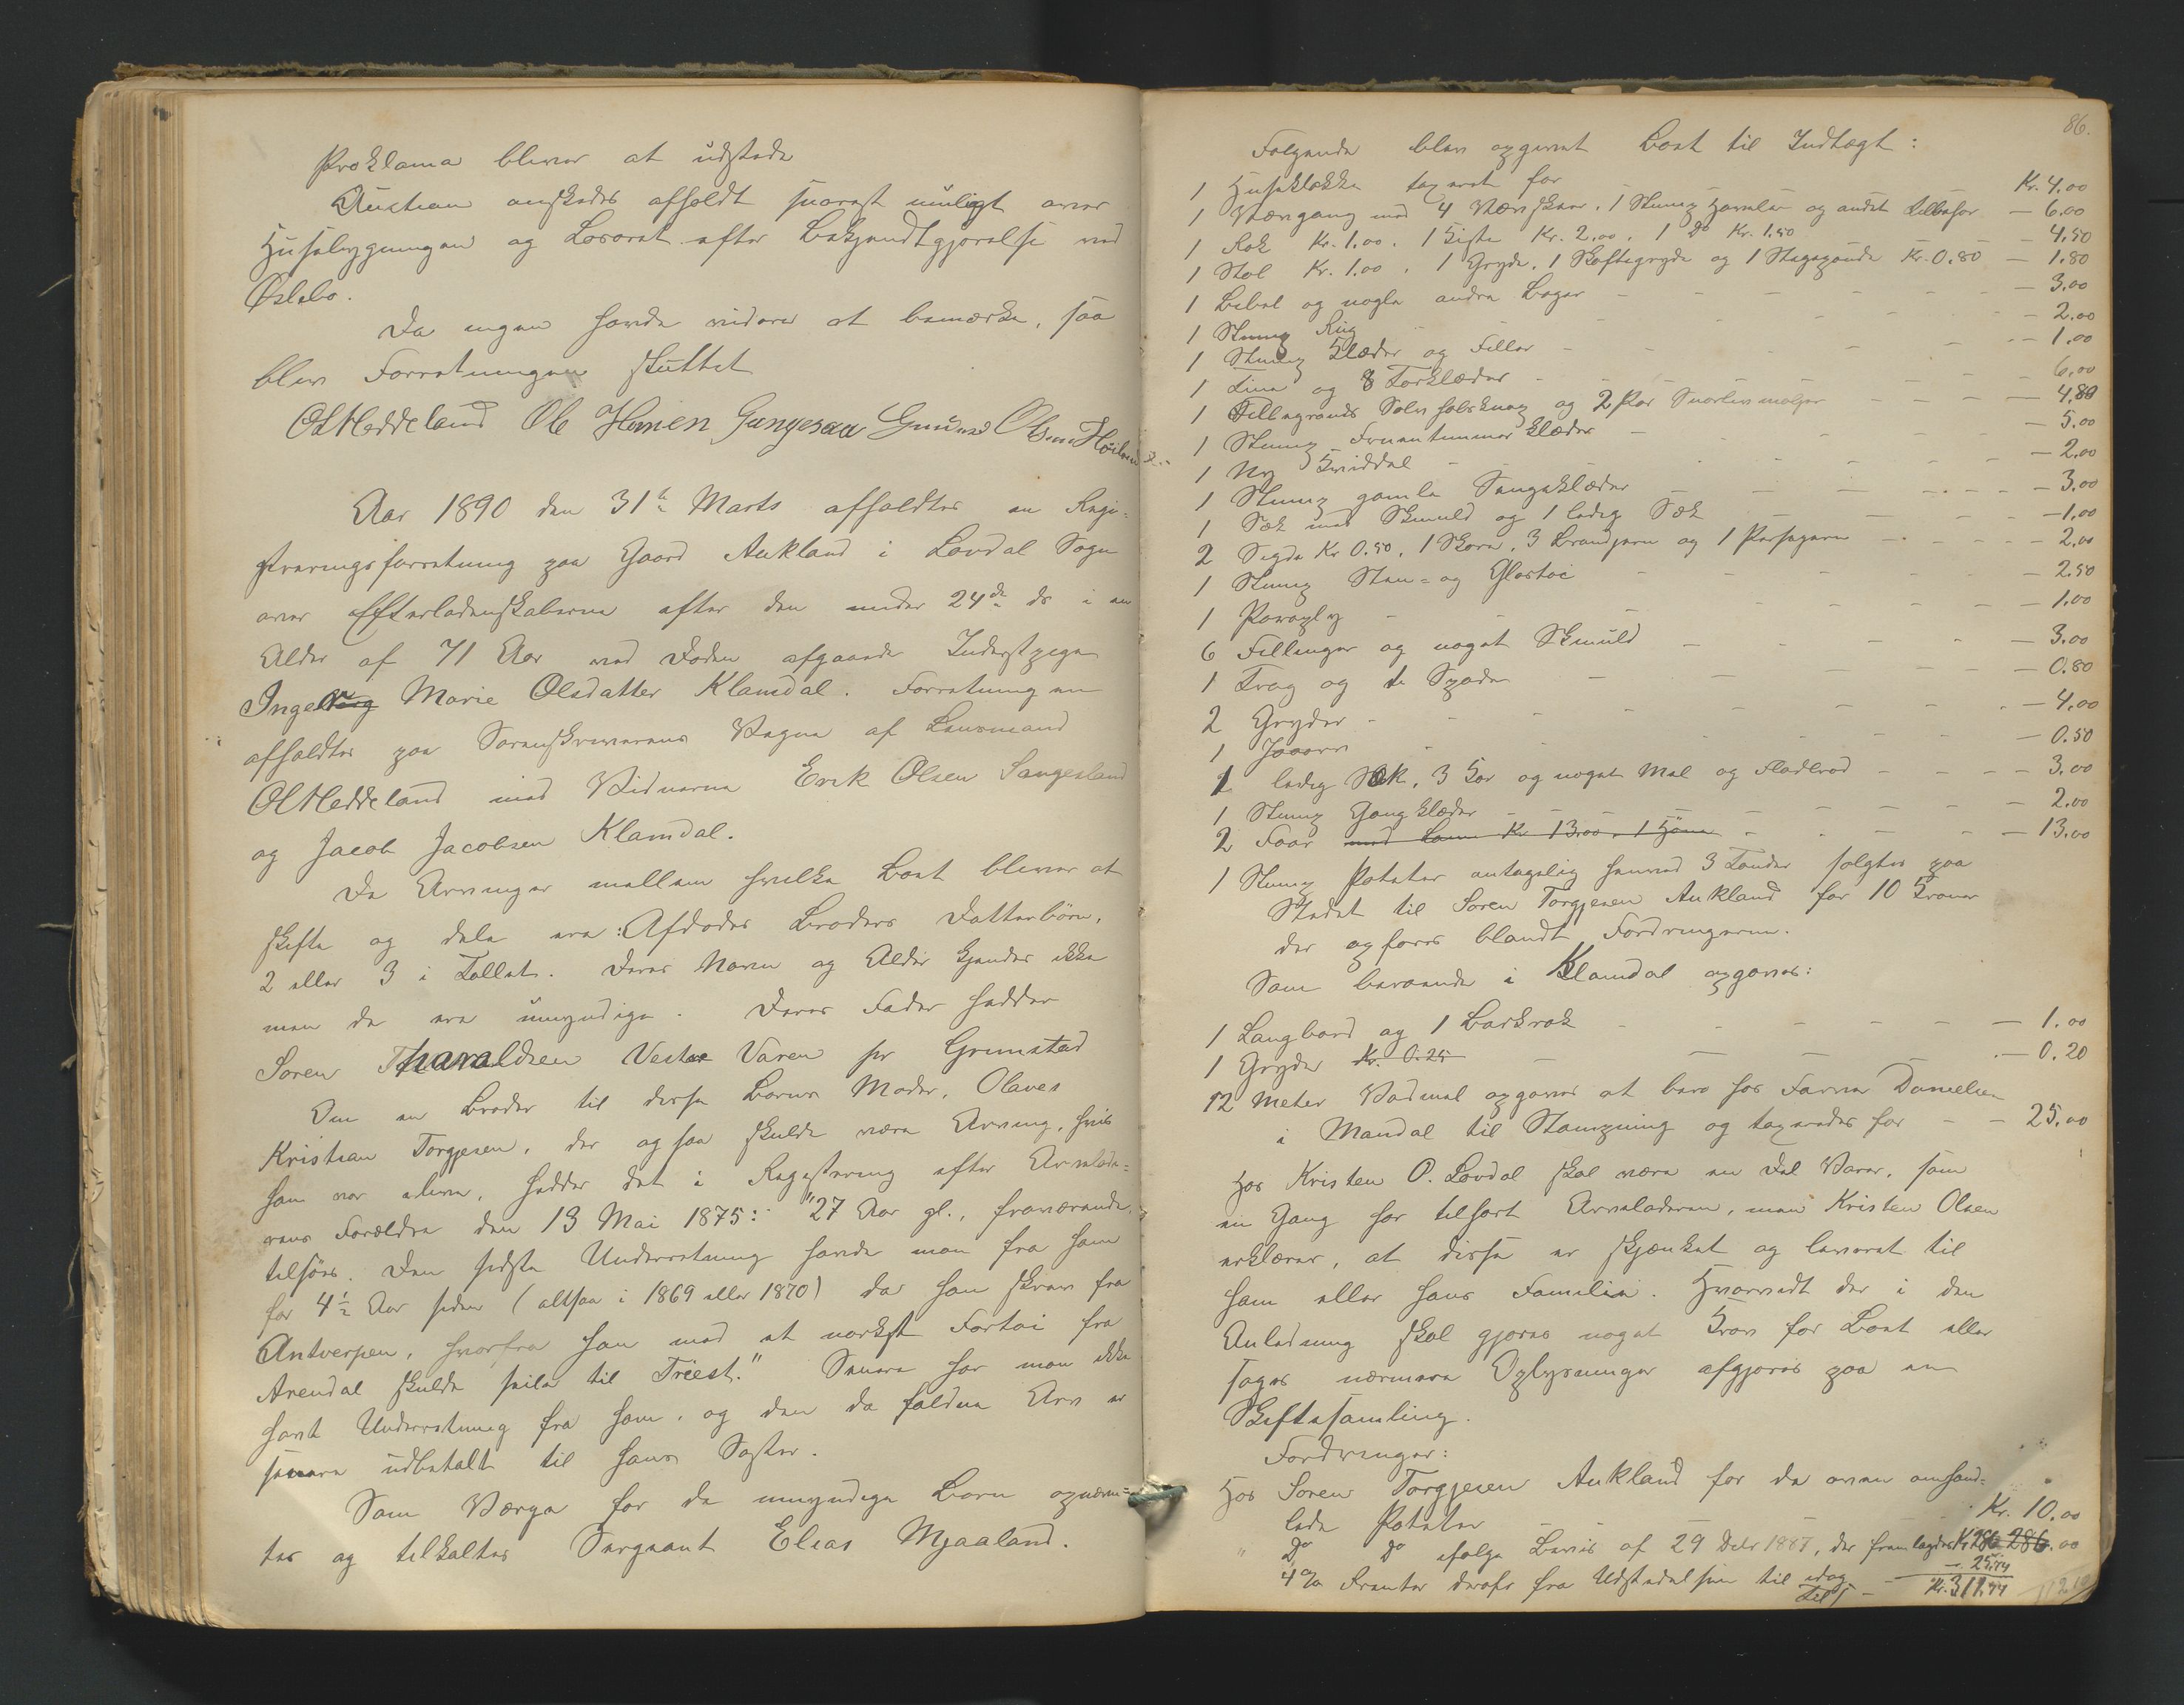 Proklama bliver at udstede
Auction önskedes afholdt snarest muligt over
Husebygningen og Lösöret efter Bekjendtgjörelse ved
Öslebö.
Da ingen havde videre at bemærke, saa
blev Forretningen sluttet
O Heddeland Ole Hansen Gungesaa Gunuld Olsen
Aar 1890 den 31te Marts afholdtes en Regi-
streringsforretning paa Gaard Aukland i Lövdal Sogn
over Efterladenskaberne efter den under 24de ds i en
Alder af 71 Aar ved Döden afgaaede Inderstpige
Ingeborg Marie Olsdatter Klamdal. Forretningen
afholdtes paa Sorenskriverens Vegne af Lensmand
O Heddeland med Vidnerne Erik Olsen Sangesland
og Jacob Jacobsen Klamdal.
De Arvinger mellem hvilke Boet bliver at
skifte og dele ere: Afdödes Broders Datterbörn,
2 eller 3 i Tallet. Deres Navn og Alder kjendes ikke
men de ere umyndige. Deres Fader hedder
Sören Tharaldsen Vestre Vären pr Grimstad
Om en Broder til disse Börns Moder, Olaves
Kristian Torgjesen, der ogsaa skulde være Arving, hvis
han var ilive, hedder det i Registrering efter Arvelade-
rens Forældre den 13 Mai 1875: "27 Aar gl., fraværende,
tilsöes. Den sidste Underretning havde man fra ham
for 4½ Aar siden (altsaa i 1869 eller 1870) da han skrev fra
Antverpen, hvorfra han med et norskt Fartöi fra
Arendal skulde seile til Triest." Senere har man ikke
havt Underretning fra ham, og den da faldne Arv er
senere udbetalt til hans Söster.
Som Værge for de umyndige Börn opnævn-
tes og tilkaldtes Sergeant Elias Mjaaland.
86.
Fölgende blev opgivet Boet til Indtægt:
1 Huseklokke taxeret for Kr. 4.00
1 Vævgang med 4 Vævskeer, 1 Slump Haveler og andet tilbehör — 6.00
1 Rok Kr. 1.00. 1 Kiste Kr. 2.00. 1 Do Kr. 1.50 — 4.50
1 Stol Kr. 1.00, 1 Gryde, 1 Skaftegryde og 1 Stegepande Kr. 0.80 — 1.80
1 Bibel og nogle andre Böger — 3.00
1 Slump Rug — 2.00
1 Slump Klæder og Filler — 1.00
1 Line og 8 Torklæder — 6.00
1 Sölv halsknap og 2 Par — 4.80
1 Slump Fruentimmer klæder — 5.00
1 Ny — 2.00
1 Slump gamle Sengeklæder — 3.00
1 Sæk med Skmuld og 1 ledig Sæk — 1.00
2 Sigde Kr 0.50, 1 Skovn, 3 og 1 — 2.00
1 Slump Sten- og Glastöi — 2.50
1 Paraply — 1.00
6 Fillinger og noget Skmuld — 3.00
1 Trog og 1 Spade — 0.80
2 Gryder — 4.00
1 — 0.50
1 ledig Sæk, 3 Kar og noget Mel og Fladbröd — 3.00
1 Slump Gangklæder — 2.00
2 Faar med Lam Kr 13.00. 1 Höne — 13.00
1 Slump Poteter antagelig henved 3 Tönder solgtes paa
Stedet til Sören Torgjesen Aukland for 10 Kroner
der opföres blandt Fordringerne.
Som beroende i Klamdal opgaves:
1 Langbord og 1 — 1.00
1 Gryde Kr. 0.25 — 0.20
12 Meter Vadmel opgaves at bero hos Farver Danielsen
i Mandal til Stampning og taxeredes for — 25.00
Hos Kristen O. Lövdal skal være en Del Varer, som
en Gang har tilhört Arveladeren, men Kristen Olsen
erklærer, at disse er skjænket og leveret til
ham eller hans Familie. Hvorvidt der i den
Anledning skal gjöres noget Krav for Boet eller
söges nærmere Oplysninger afgjöres paa en
Skiftesamling.
Fordringer:
Hos Sören Torgjesen Aukland for de oven omhand-
lede Poteter Kr. 10.00
" Do Do ifölge Bevis af 29 Debr 1887, der fremlagdes Kr 286.00
4% Renter deraf fra Udstedelsen til idag — 25.74
Tils. — Kr. 312.74